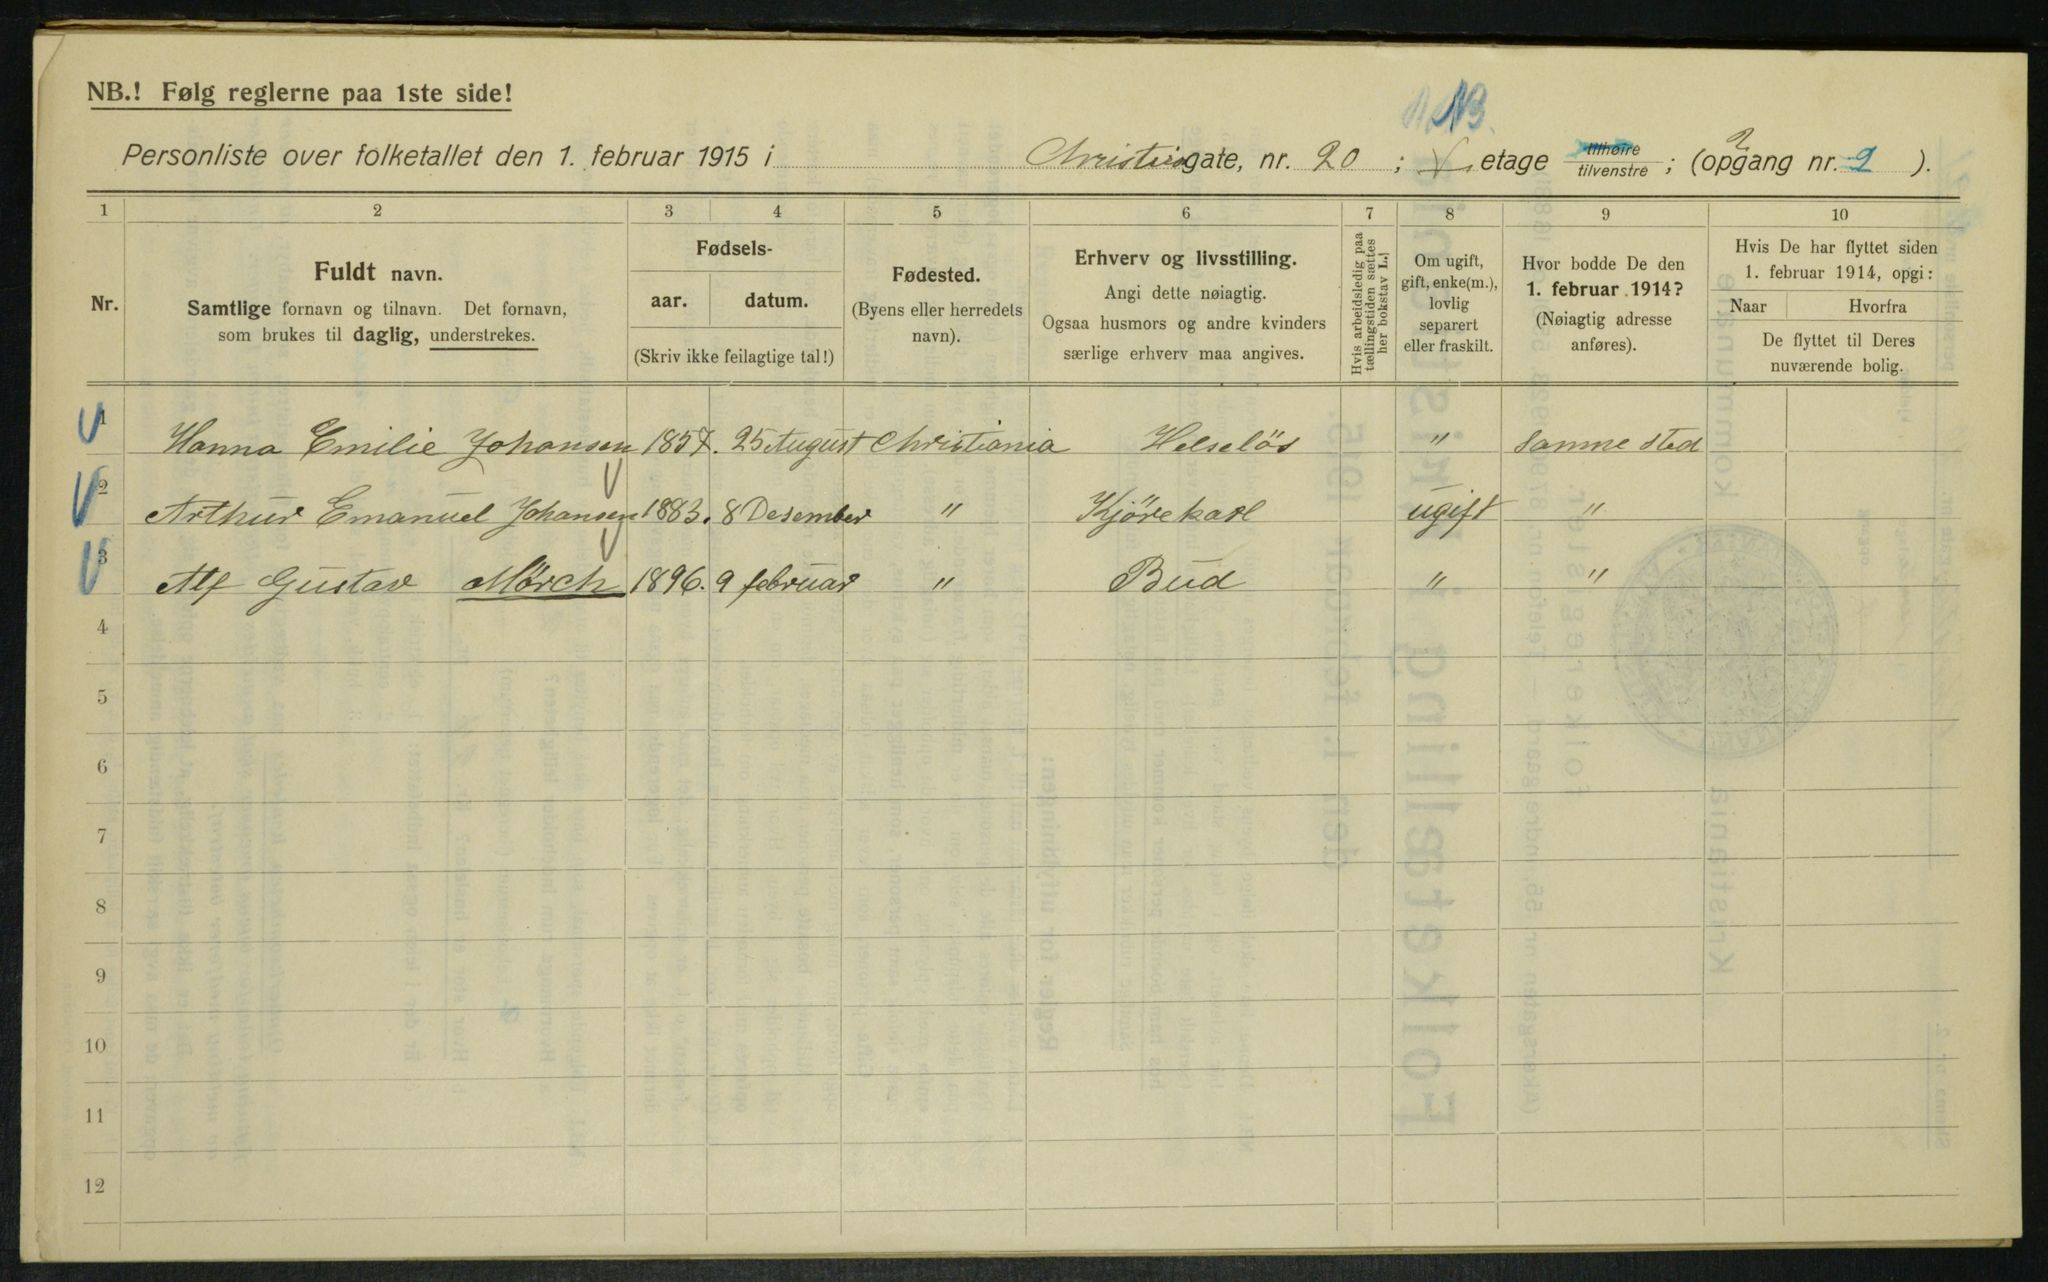 NB.
NB.! Følg reglerne paa 1ste side!
Personliste over folketallet den 1. februar 1915 i Christies gate, nr. 20 ; etage tilhøire tilvenstre ; (opgang nr. 2 ).
1 2 3 4 5 6 7 8 9 10
Nr.
Fuldt navn.
Samtlige fornavn og tilnavn. Det fornavn,
som brukes til daglig, understrekes.
Fødsels-
aar. datum.
(Skriv ikke feilagtige tal!)
Fødested.
(Byens eller herredets
navn).
Erhverv og livsstilling.
Angi dette nøiagtig.
Ogsaa husmors og andre kvinders
særlige erhverv maa angives.
Hvis arbeidsledig paa
tællingstiden sættes
her bokstav L.!
Om ugift,
gift, enke(m.),
lovlig
separert
eller fraskilt.
Hvor bodde De den
1. februar 1914?
(Nøiagtig adresse
anføres).
Hvis De har flyttet siden
1. februar 1914, opgi:
Naar Hvorfra
De flyttet til Deres
nuværende bolig.
1 Hanna Emilie Johansen 1857. 25 August Christiania Helseløs " Samme sted
2 Arthur Emanuel Johansen 1883. 8 Desember " Kjörekarl ugift "
3 Alf Gustav Mörch 1896. 9 februar " Bud " "
4
5
6
7
8
9
10
11
12